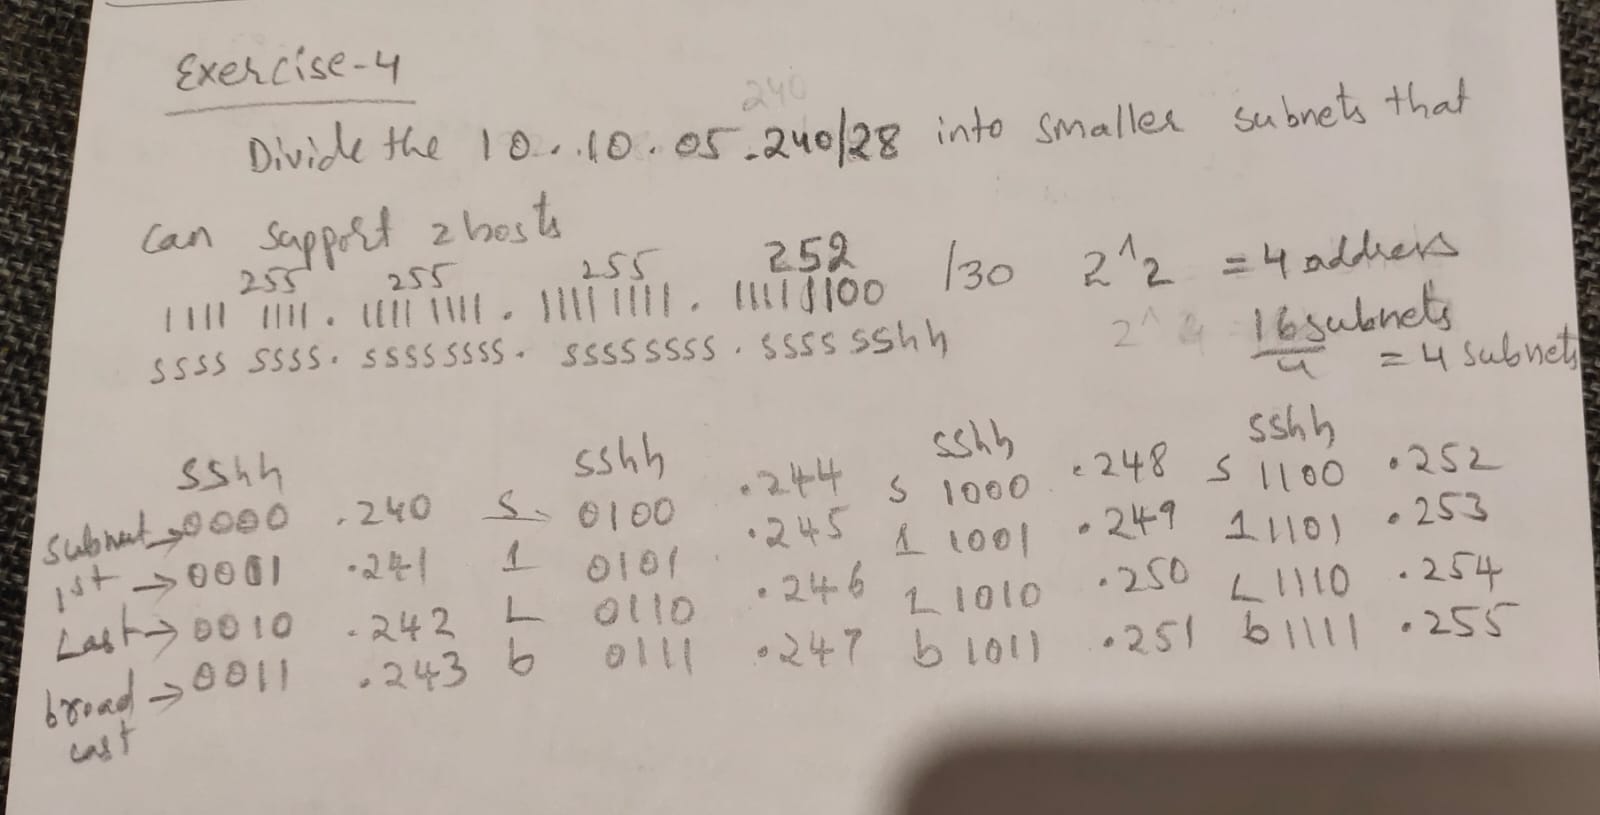 Exercise-4
240
Divide the 10..10.05.240/28 into smaller subnets that
can support 2 hosts
255 255 255 252
1111 1111. 1111 1111. 1111 1111. 11111100 /30 2^2 = 4 address
ssss ssss. ssss ssss. ssssssss. ssss sshh 16 subnets
4 = 4 subnets
sshh sshh sshh sshh
subnet→0000 .240 S. 0100 .244 S 1000 .248 S 1100 .252
1st →0001 .241 1 0101 .245 1 1001 .249 1 1101 .253
Last→0010 .242 L 0110 .246 L 1010 .250 L 1110 .254
broad →0011 .243 b 0111 .247 b 1011 .251 b 1111 .255
cast